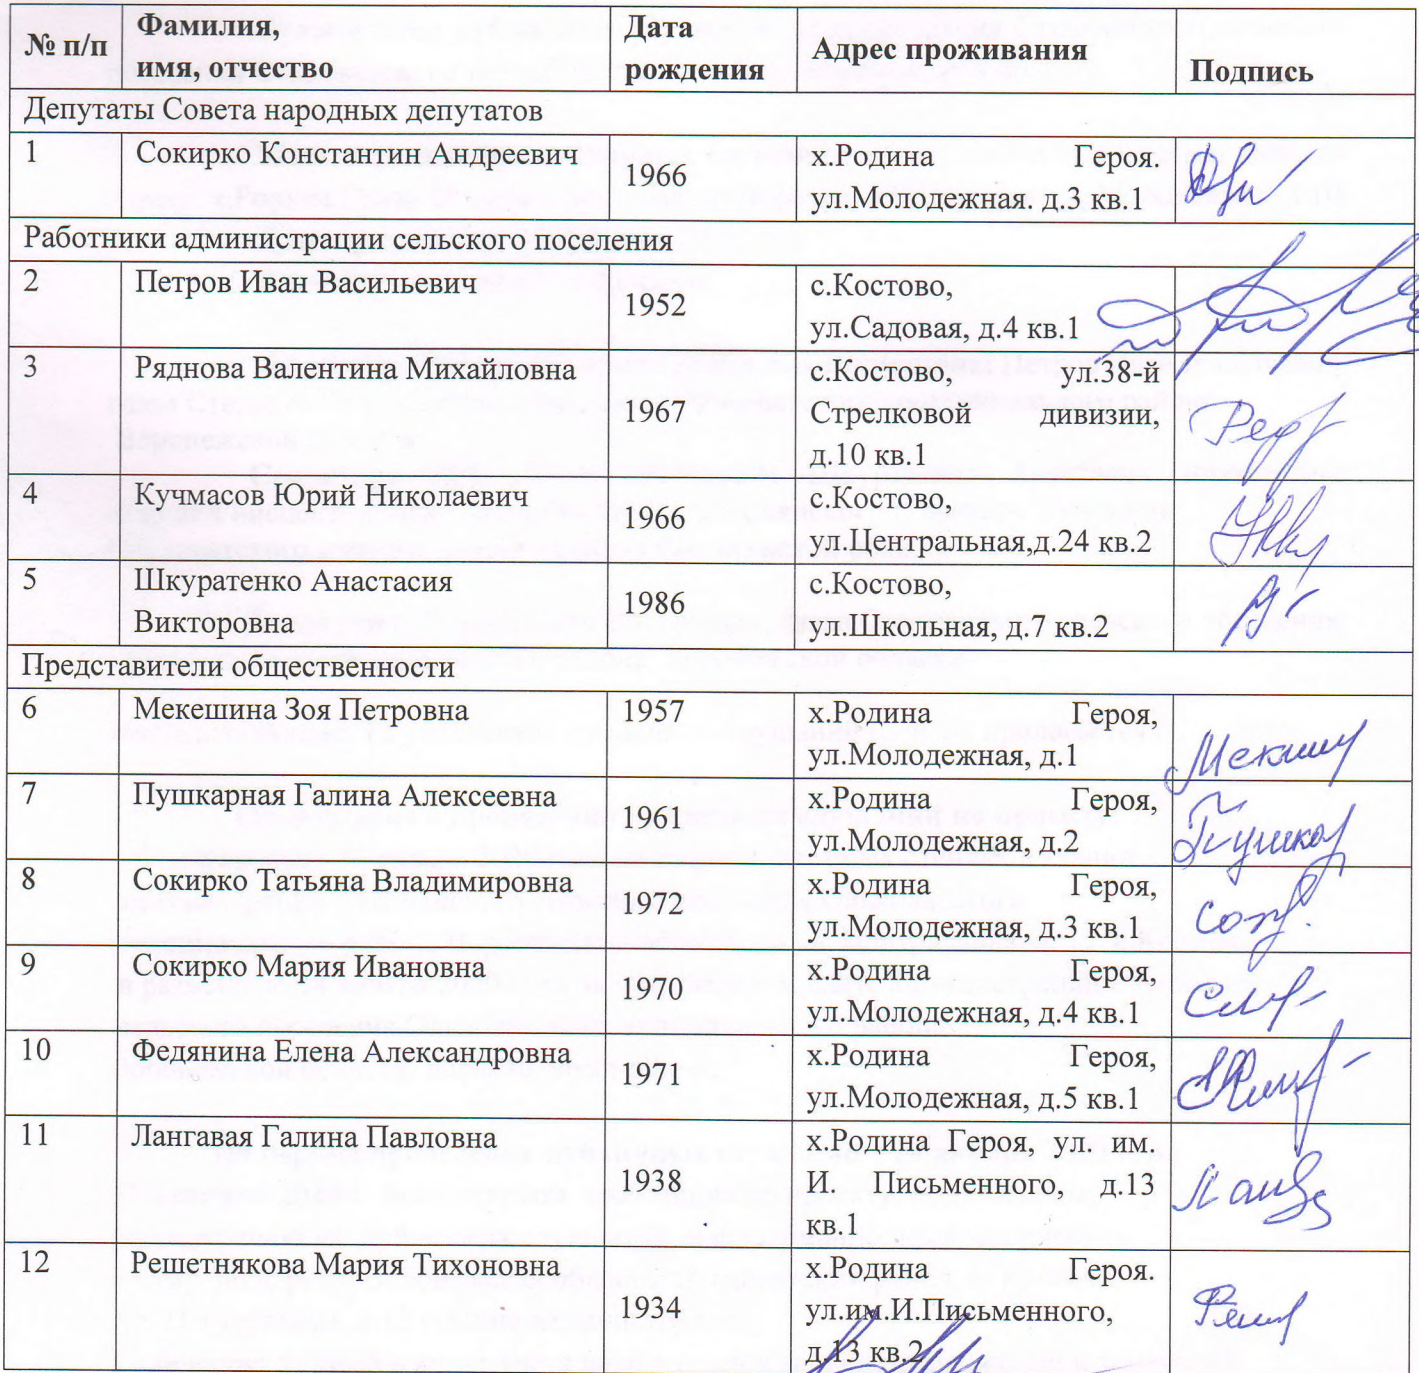 № п/п Фамилия, имя, отчество Дата рождения Адрес проживания Подпись
Депутаты Совета народных депутатов
1 Сокирко Константин Андреевич 1966 х.Родина Героя.
ул.Молодежная. д.3 кв.1
Работники администрации сельского поселения
2 Петров Иван Васильевич 1952 с.Костово,
ул.Садовая, д.4 кв.1
3 Ряднова Валентина Михайловна 1967 с.Костово, ул.38-й
Стрелковой дивизии,
д.10 кв.1
4 Кучмасов Юрий Николаевич 1966 с.Костово,
ул.Центральная,д.24 кв.2
5 Шкуратенко Анастасия
Викторовна 1986 с.Костово,
ул.Школьная, д.7 кв.2
Представители общественности
6 Мекешина Зоя Петровна 1957 х.Родина Героя,
ул.Молодежная, д.1
7 Пушкарная Галина Алексеевна 1961 х.Родина Героя,
ул.Молодежная, д.2
8 Сокирко Татьяна Владимировна 1972 х.Родина Героя,
ул.Молодежная, д.3 кв.1
9 Сокирко Мария Ивановна 1970 х.Родина Героя,
ул.Молодежная, д.4 кв.1
10 Федянина Елена Александровна 1971 х.Родина Героя,
ул.Молодежная, д.5 кв.1
11 Лангавая Галина Павловна 1938 х.Родина Героя, ул. им.
И. Письменного, д.13
кв.1
12 Решетнякова Мария Тихоновна 1934 х.Родина Героя.
ул.им.И.Письменного,
д.13 кв.2